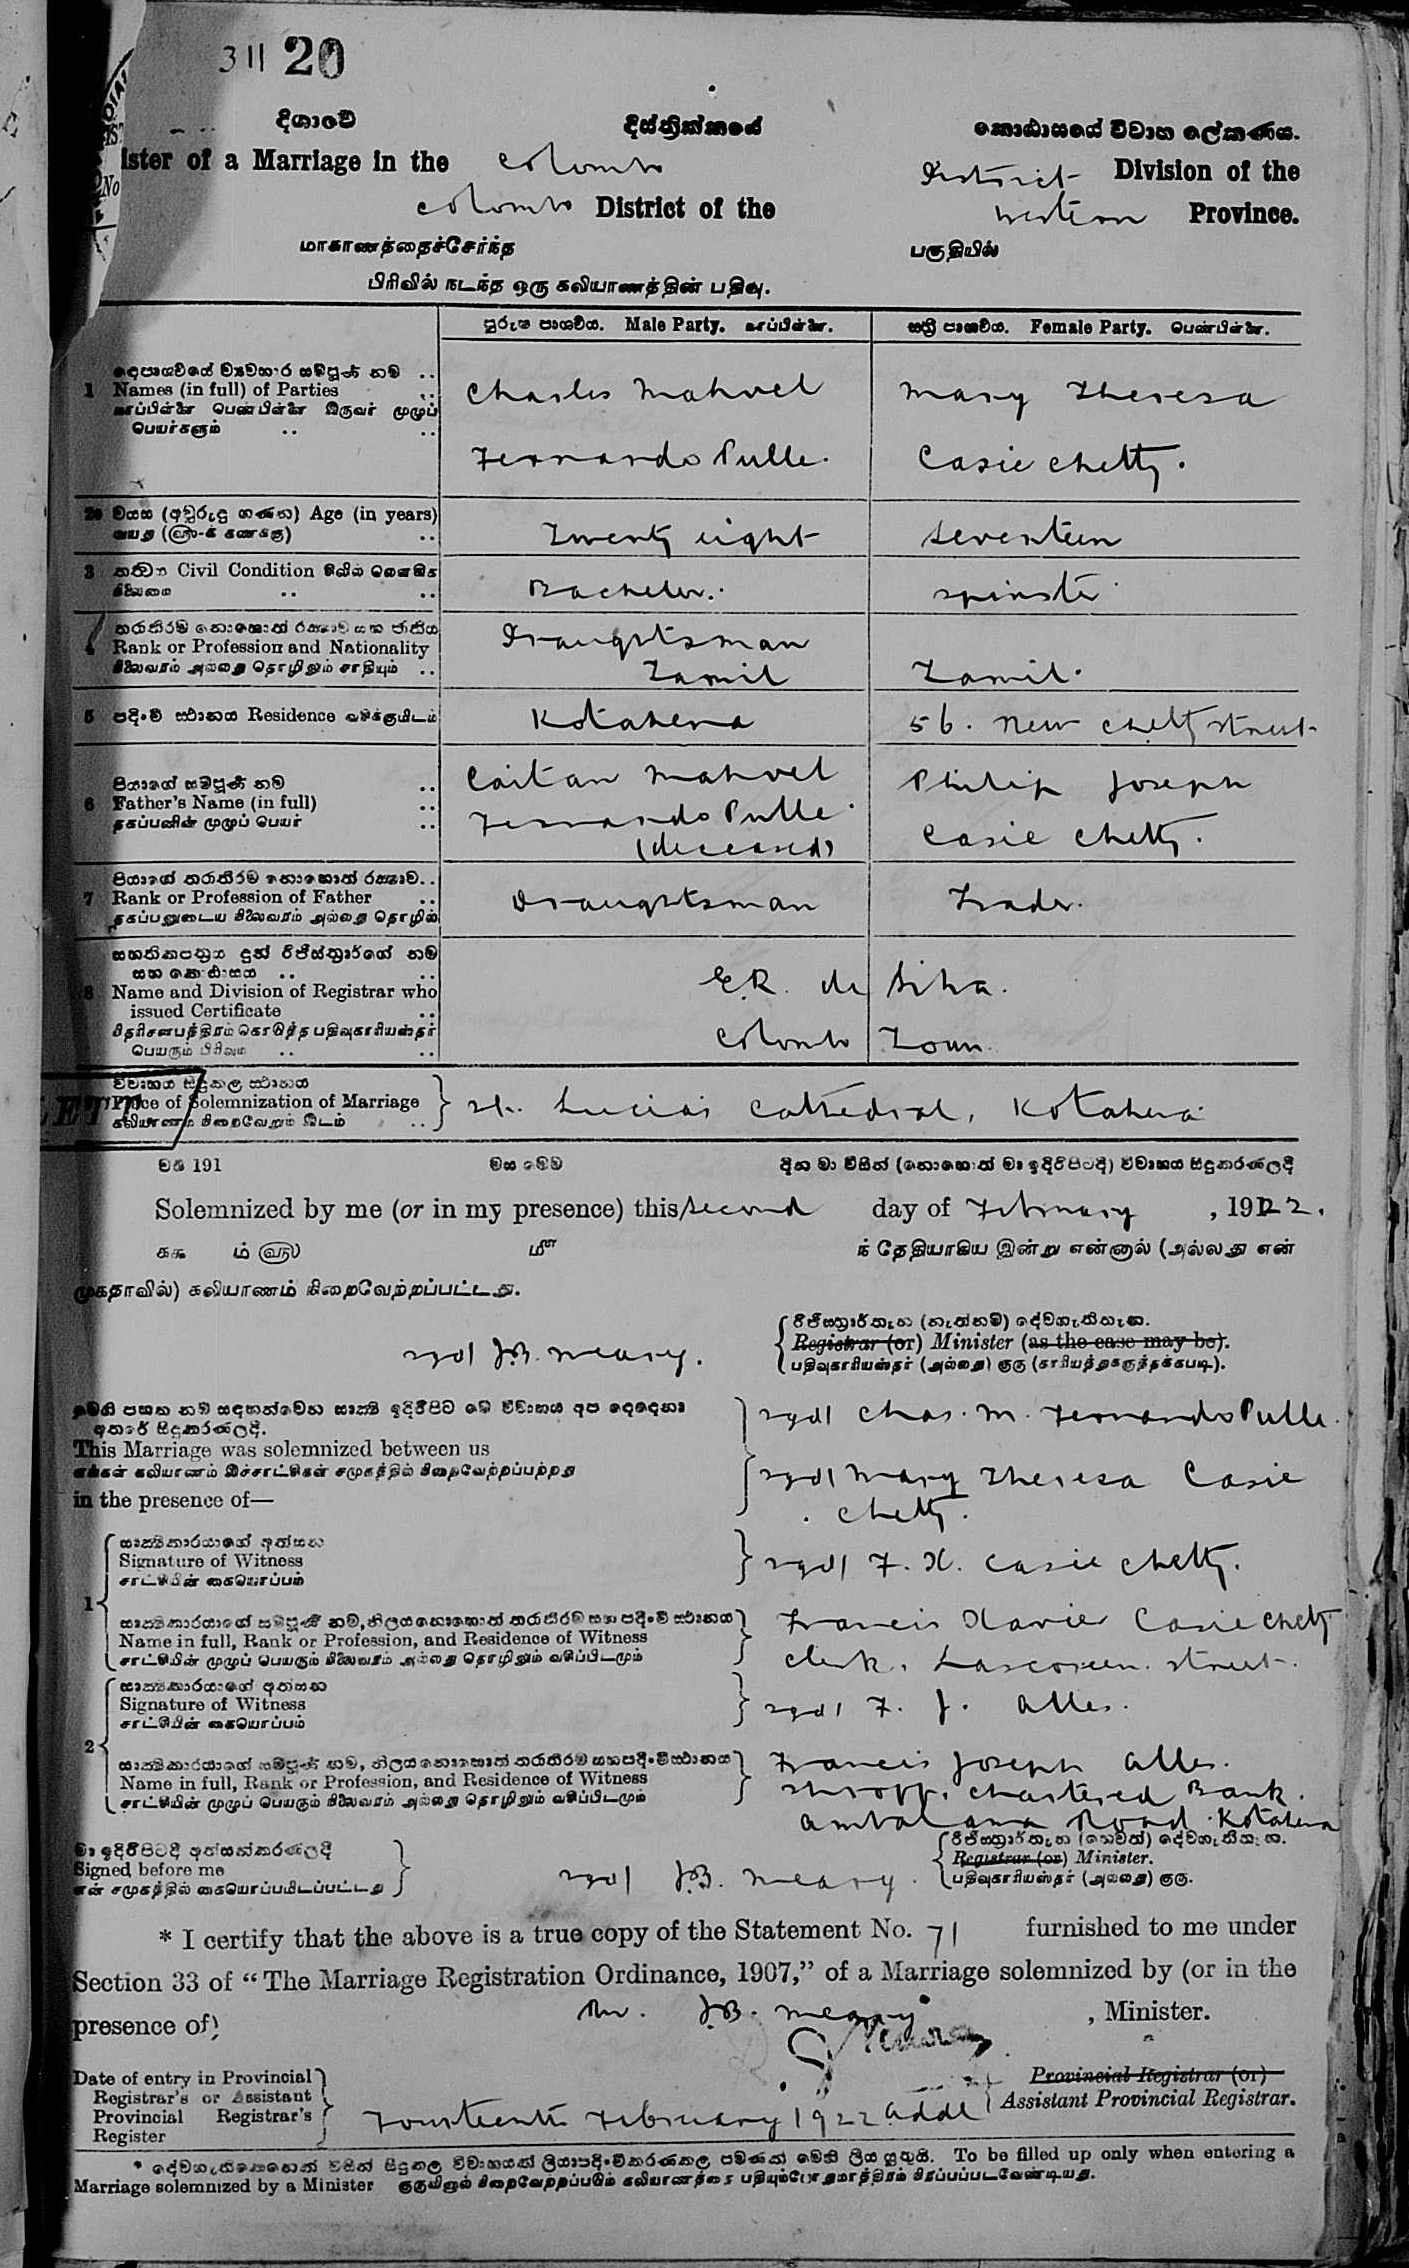 311 20
දිශාවේ දිස්ත්‍රික්කයේ කොඨාසයේ විවාහ ලේකණය.
ister of a Marriage in the Colombo District Division of the
Colombo District of the Western Province.
மாகாணத்தைச்சேர்ந்த பகுதியில்
பிரிவில் நடந்த ஒரு கலியாணத்தின் பதிவு.
පුරුෂ පාශ්වය. Male Party. மாப்பிள்ளை. ස්ත්‍රී පාශ්වය. Female Party. பெண்பிள்ளை.
1 Names (in full) of Parties
மாப்பிள்ளை பெண்பிள்ளை இருவர் முழுப்
பெயர்களும்
Charles Manuel Mary Theresa
Fernando Pulle. Casie Chetty.
2 වයස (අවුරුදු ගණන) Age (in years)
Twenty eight Seventeen
3 Civil Condition
Bachelor. Spinster
4 Rank or Profession and Nationality
நிலைவரம் அல்லது தொழிலும் சாதியும்
Draughtsman
Tamil Tamil.
5 පදිංචි ස්ථානය Residence வசிக்குமிடம்
Kotahena 56. New Chetty Street
6 පියාගේ සම්පූර්ණ නම
Father's Name (in full)
தகப்பனின் முழுப் பெயர்
Caitan Manuel Philip Joseph
Fernando Pulle Casie Chetty.
(deceased)
7 Rank or Profession of Father
தகப்பனுடைய நிலைவரம் அல்லது தொழில்
Draughtsman Trader.
8 Name and Division of Registrar who
issued Certificate
பெயரும் பிரிவும்
E.R. de Silva.
Colombo Town.
විවාහය සිදුකල ස්ථානය
Place of Solemnization of Marriage
கலியாணம் நிறைவேறும் இடம்
St. Lucia's Cathedral, Kotahena
වර්ෂ 191 මස මෙම දින මා විසින් (නොහොත් මා ඉදිරිපිටදී) විවාහය සිදුකරණලදී
Solemnized by me (or in my presence) this second day of February, 1922.
ம் மீ ந் தேதியாகிய இன்று என்னால் (அல்லது என்
முகதாவில்) கலியாணம் நிறைவேற்றப்பட்டது.
sgd/ J.B. Meary.
Registrar (or) Minister (as the case may be).
பதிவுகாரியஸ்தர் (அல்லது) குரு (காரியத்துக்குத்தக்கபடி).
This Marriage was solemnized between us
எங்கள் கலியாணம் இச்சாட்சிகள் சமுகத்தில் நிறைவேற்றப்பற்றது
in the presence of—
sgd/ Chas. M. Fernando Pulle.
sgd/ Mary Theresa Casie
Chetty.
1 සාක්ෂිකාරයාගේ අත්සන
Signature of Witness
சாட்சியின் கையொப்பம்
sgd/ F. X. Casie Chetty.
Name in full, Rank or Profession, and Residence of Witness
சாட்சியின் முழுப் பெயரும் நிலைவரம் அல்லது தொழிலும் வசிப்பிடமும்
Francis Xavier Casie Chetty
Clerk. Lascoreen Street.
2 සාක්ෂිකාරයාගේ අත්සන
Signature of Witness
சாட்சியின் கையொப்பம்
sgd/ F. J. Alles.
Name in full, Rank or Profession, and Residence of Witness
சாட்சியின் முழுப் பெயரும் நிலைவரம் அல்லது தொழிலும் வசிப்பிடமும்
Francis Joseph Alles.
Shroff, Chartered Bank.
Ambalama Road Kotahena
මා ඉදිරිපිටදී අත්සන්කරණලදී
Signed before me
என் சமுகத்தில் கையொப்பமிடப்பட்டது
sgd/ J.B. Meary.
Registrar (or) Minister.
பதிவுகாரியஸ்தர் (அல்லது) குரு.
* I certify that the above is a true copy of the Statement No. 71 furnished to me under
Section 33 of “The Marriage Registration Ordinance, 1907,” of a Marriage solemnized by (or in the
presence of) J.B. Meary, Minister.
Date of entry in Provincial
Registrar's or Assistant
Provincial Registrar's
Register
Fourteenth February 1922 Addl
Provincial Registrar (or)
Assistant Provincial Registrar.
To be filled up only when entering a
Marriage solemnized by a Minister குருவினால் நிறைவேற்றப்படும் கலியாணத்தை பதியும்போதுமாத்திரம் நிரப்பப்படவேண்டியது.